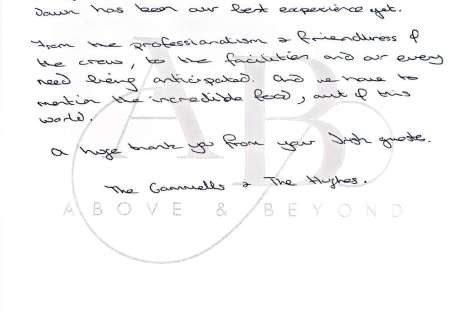 Dawn has been our best experience yet.
From the professionalism & friendliness of
the crew, to the facilities and our every
need being anticipated. And we have to
mention the incredible food, out of this
world.
A huge thank you from your Irish guests.
The Gammells & The Hughes.
AB
ABOVE & BEYOND